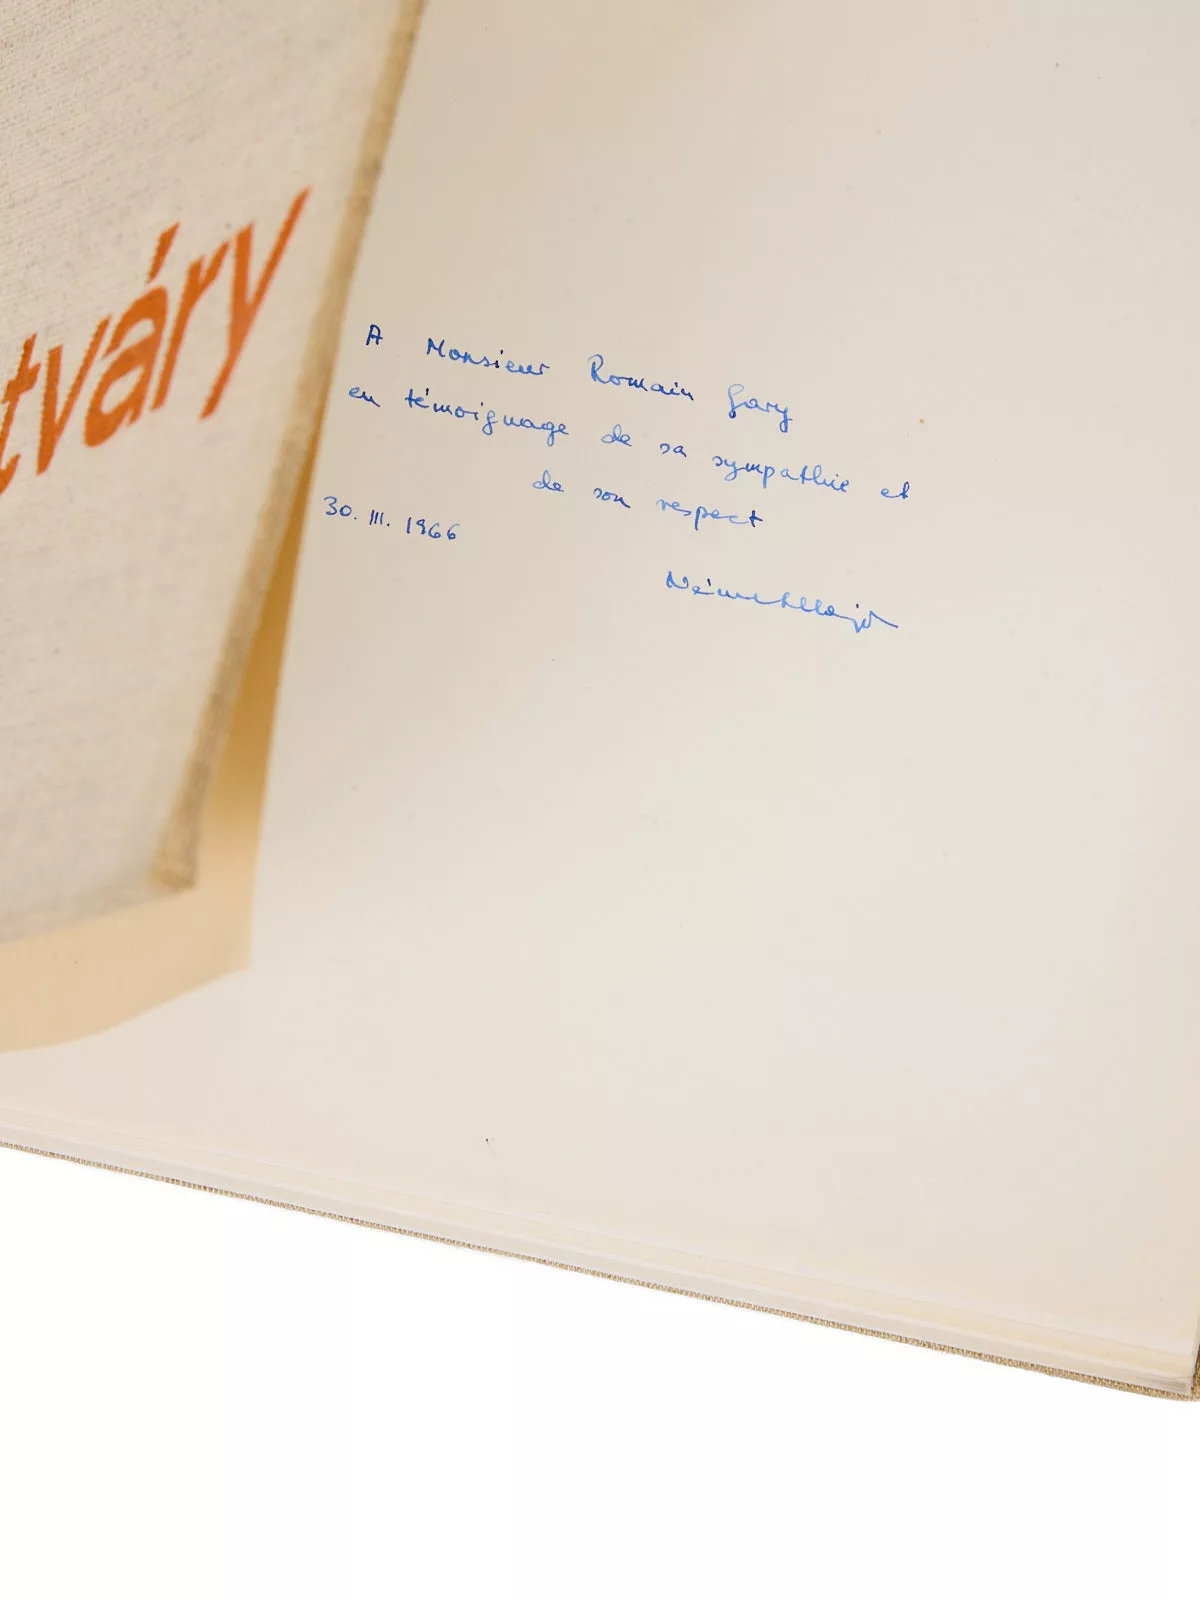 tváry
A Monsieur Romain Gary
en témoignage de sa sympathie et
de son respect
30. III. 1966
Németh Lajos